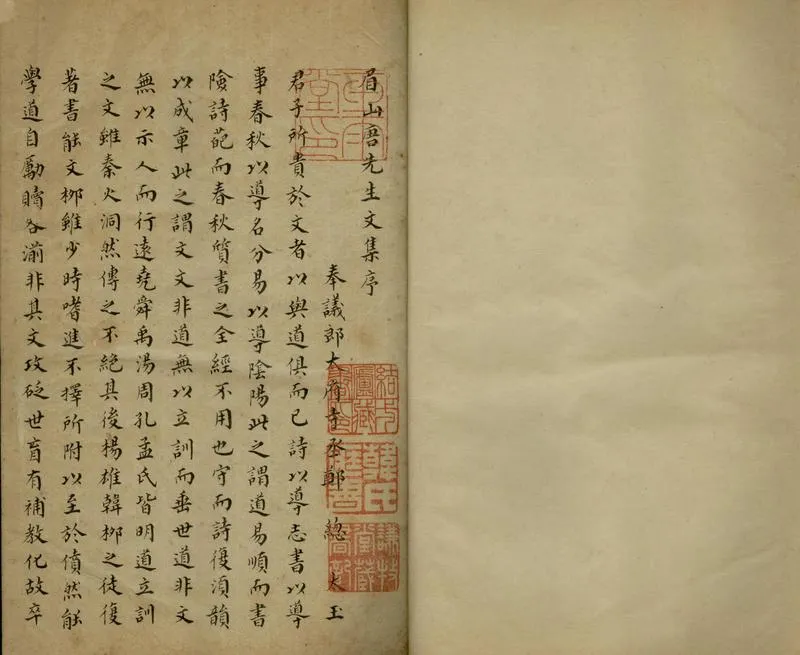 眉山唐先生文集序
奉議郎太府寺丞鄭總太玉
君子所貴於文者以與道俱而已詩以導志書以導
事春秋以導名分易以導陰陽此之謂道易順而書
險詩葩而春秋質書之全經不用也守而詩復須韻
以成章此之謂文文非道無以立訓而垂世道非文
無以示人而行遠堯舜禹湯周孔孟氏皆明道立訓
之文雖秦火洞然傳之不絕其後楊雄韓柳之徒復
著書能文柳雖少時嗜進不擇所附以至於僨然能
學道自勵贖各湔非其文攻砭世盲有補教化故卒